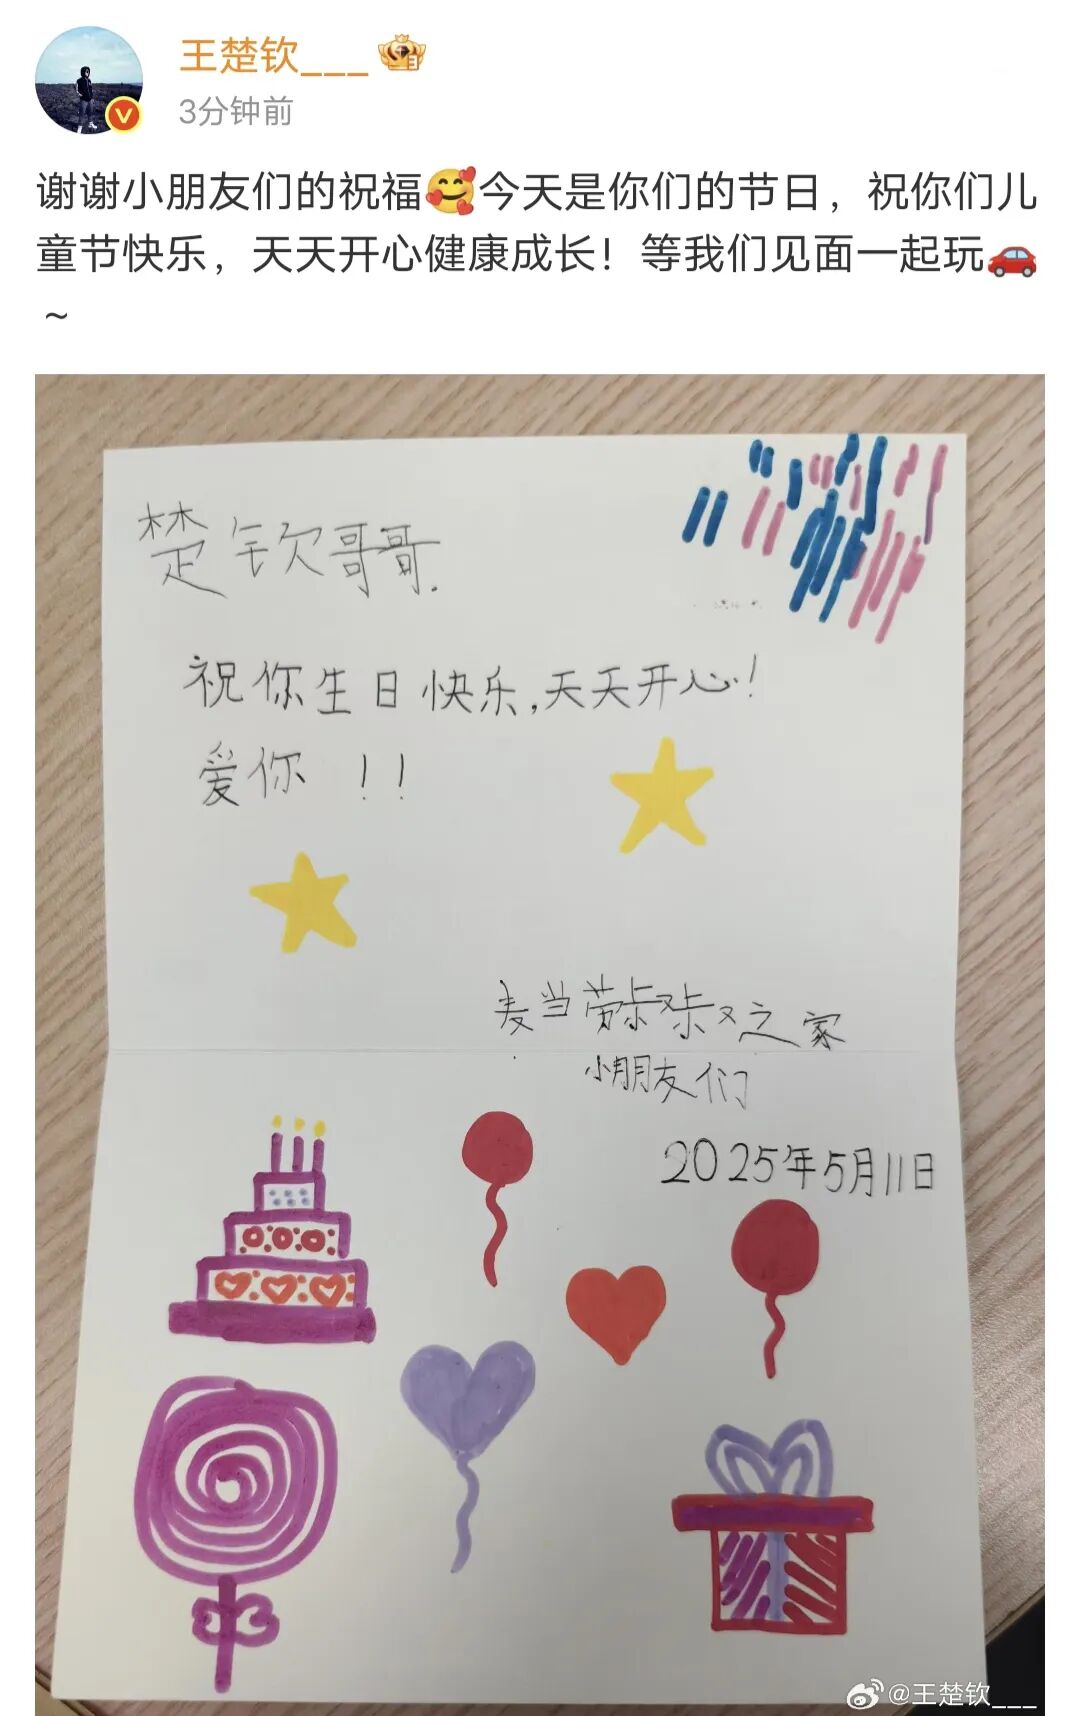 王楚钦___
3分钟前
谢谢小朋友们的祝福🥰今天是你们的节日，祝你们儿
童节快乐，天天开心健康成长！等我们见面一起玩🚗
~
楚钦哥哥.
祝你生日快乐,天天开心!
爱你 !!
麦当劳叔叔之家
小朋友们
2025年5月11日
@王楚钦___